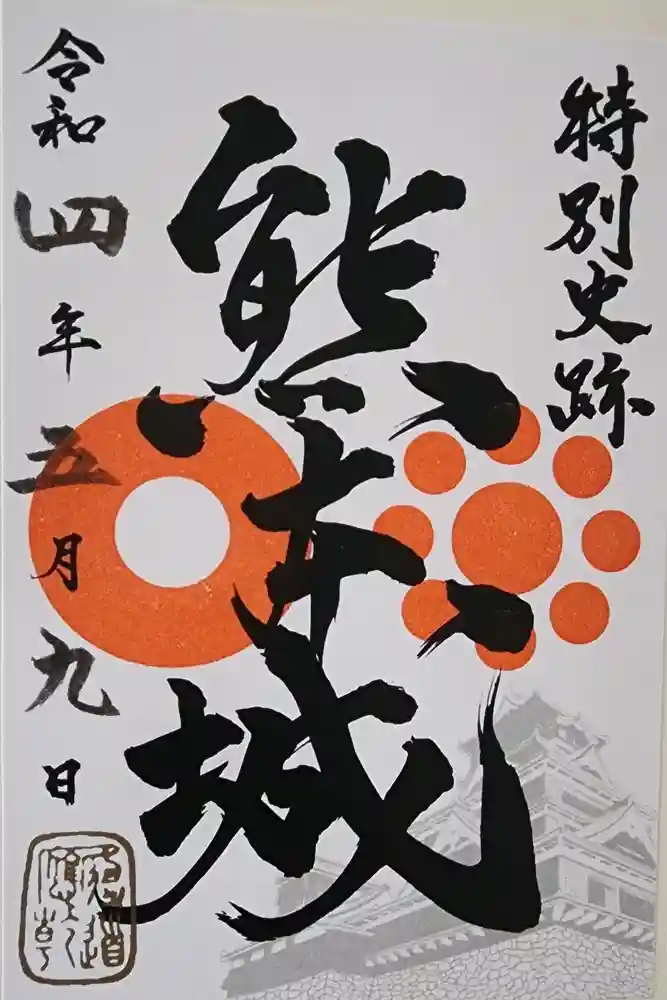 特別史跡
熊本城
令和四年五月九日